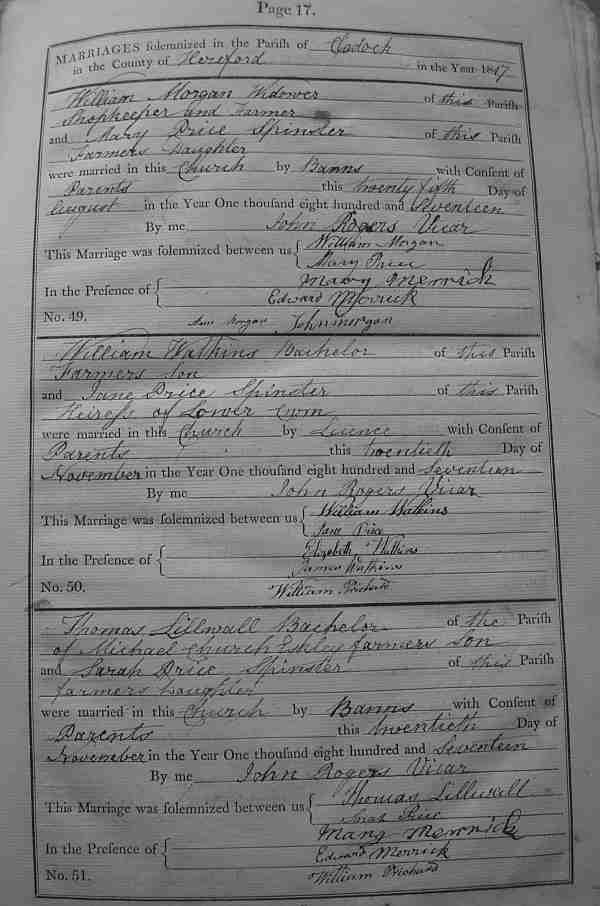 Page 17.
MARRIAGES solemnized in the Parish of Clodock
in the County of Hereford in the Year 1817
William Morgan Widower of this Parish
Shopkeeper and Farmer
and Mary Price Spinster of this Parish
Farmers Daughter
were married in this Church by Banns with Consent of
Parents this twenty fifth Day of
August in the Year One thousand eight hundred and Seventeen
By me John Rogers Vicar
This Marriage was solemnized between us { William Morgan
Mary Price
In the Presence of { Mary Merrick
Edward Merrick
No. 49. Ann Morgan John morgan
William Watkins Bachelor of this Parish
Farmers Son
and Jane Price Spinster of this Parish
Heiress of Lower Cwm
were married in this Church by Licence with Consent of
Parents this twentieth Day of
November in the Year One thousand eight hundred and Seventeen
By me John Rogers Vicar
This Marriage was solemnized between us { William Watkins
Jane Price
In the Presence of { Elizabeth Watkins
James Watkins
No. 50. William Prichard
Thomas Lillwall Bachelor of the Parish
of Michael church Eskley farmers Son
and Sarah Price Spinster of this Parish
farmers Daughter
were married in this Church by Banns with Consent of
Parents this twentieth Day of
November in the Year One thousand eight hundred and Seventeen
By me John Rogers Vicar
This Marriage was solemnized between us { Thomas Lillwall
Sarah Price
Mary Merrick
In the Presence of { Edward Merrick
No. 51. William Prichard